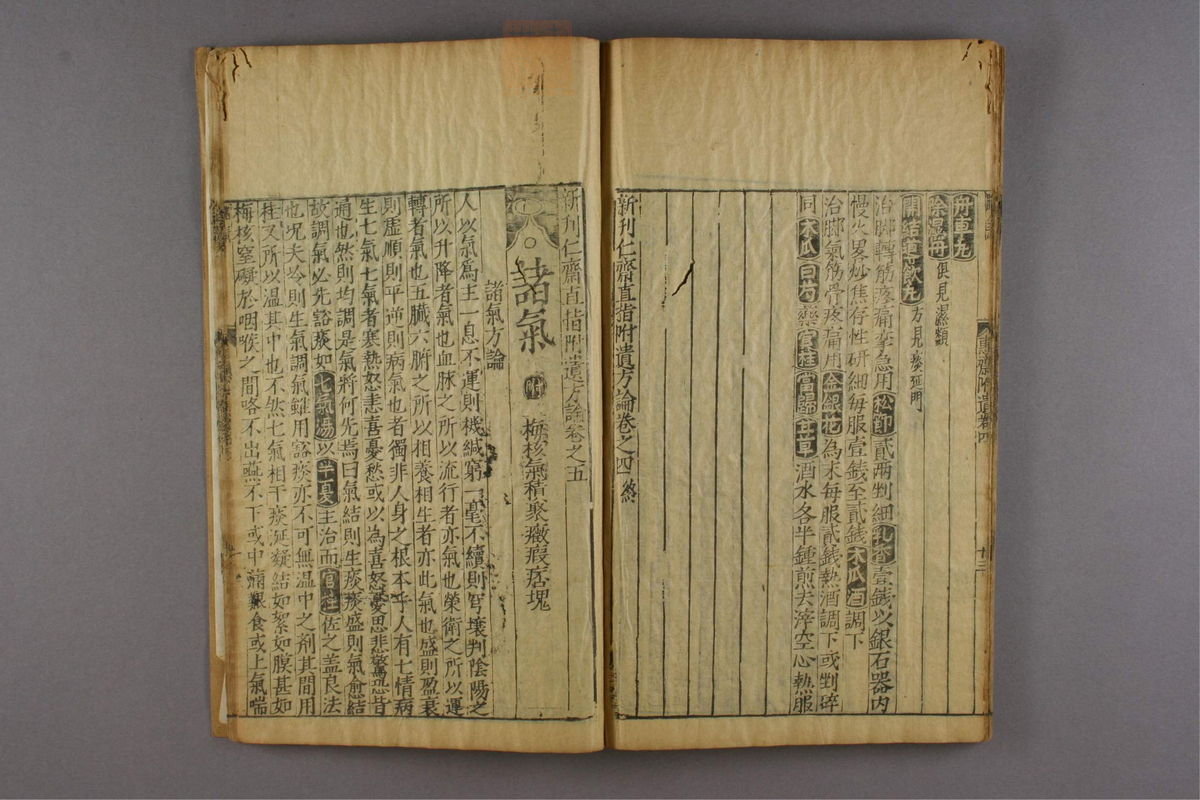 舟車丸
除濕丹 俱見濕類
開結導飲丸 方見痰涎門
治脚轉筋疼痛攣急用松節貳兩剉細乳香壹錢以銀石器內
慢火畧炒焦存性研細每服壹錢至貳錢木瓜酒調下
治脚氣筋骨疼痛用金銀花為末每服貳錢熱酒調下或剉碎
同木瓜白芍藥官桂當歸甘草酒水各半鍾煎去滓空心熱服
新刊仁齋直指附遺方論卷之四終
新刊仁齋直指附遺方論卷之五
諸氣 附 梅核氣積聚癥瘕痞塊
諸氣方論
人以氣爲主一息不運則機緘窮一毫不續則穹壤判陰陽之
所以升降者氣也血脉之所以流行者亦氣也榮衛之所以運
轉者氣也五臟六腑之所以相養相生者亦此氣也盛則盈衰
則虛順則平逆則病氣也者獨非人身之根本乎人有七情病
生七氣七氣者寒熱怒恚喜憂愁或以為喜怒憂思悲驚恐皆
通也然則均調是氣將何先焉曰氣結則生痰痰盛則氣愈結
故調氣必先豁痰如七氣湯以半夏主治而官桂佐之盖良法
也况夫冷則生氣調氣雖用豁痰亦不可無温中之剤其間用
桂又所以温其中也不然七氣相干痰涎凝結如絮如膜甚如
梅核窒礙於咽喉之間咯不出嚥不下或中滿艱食或上氣喘